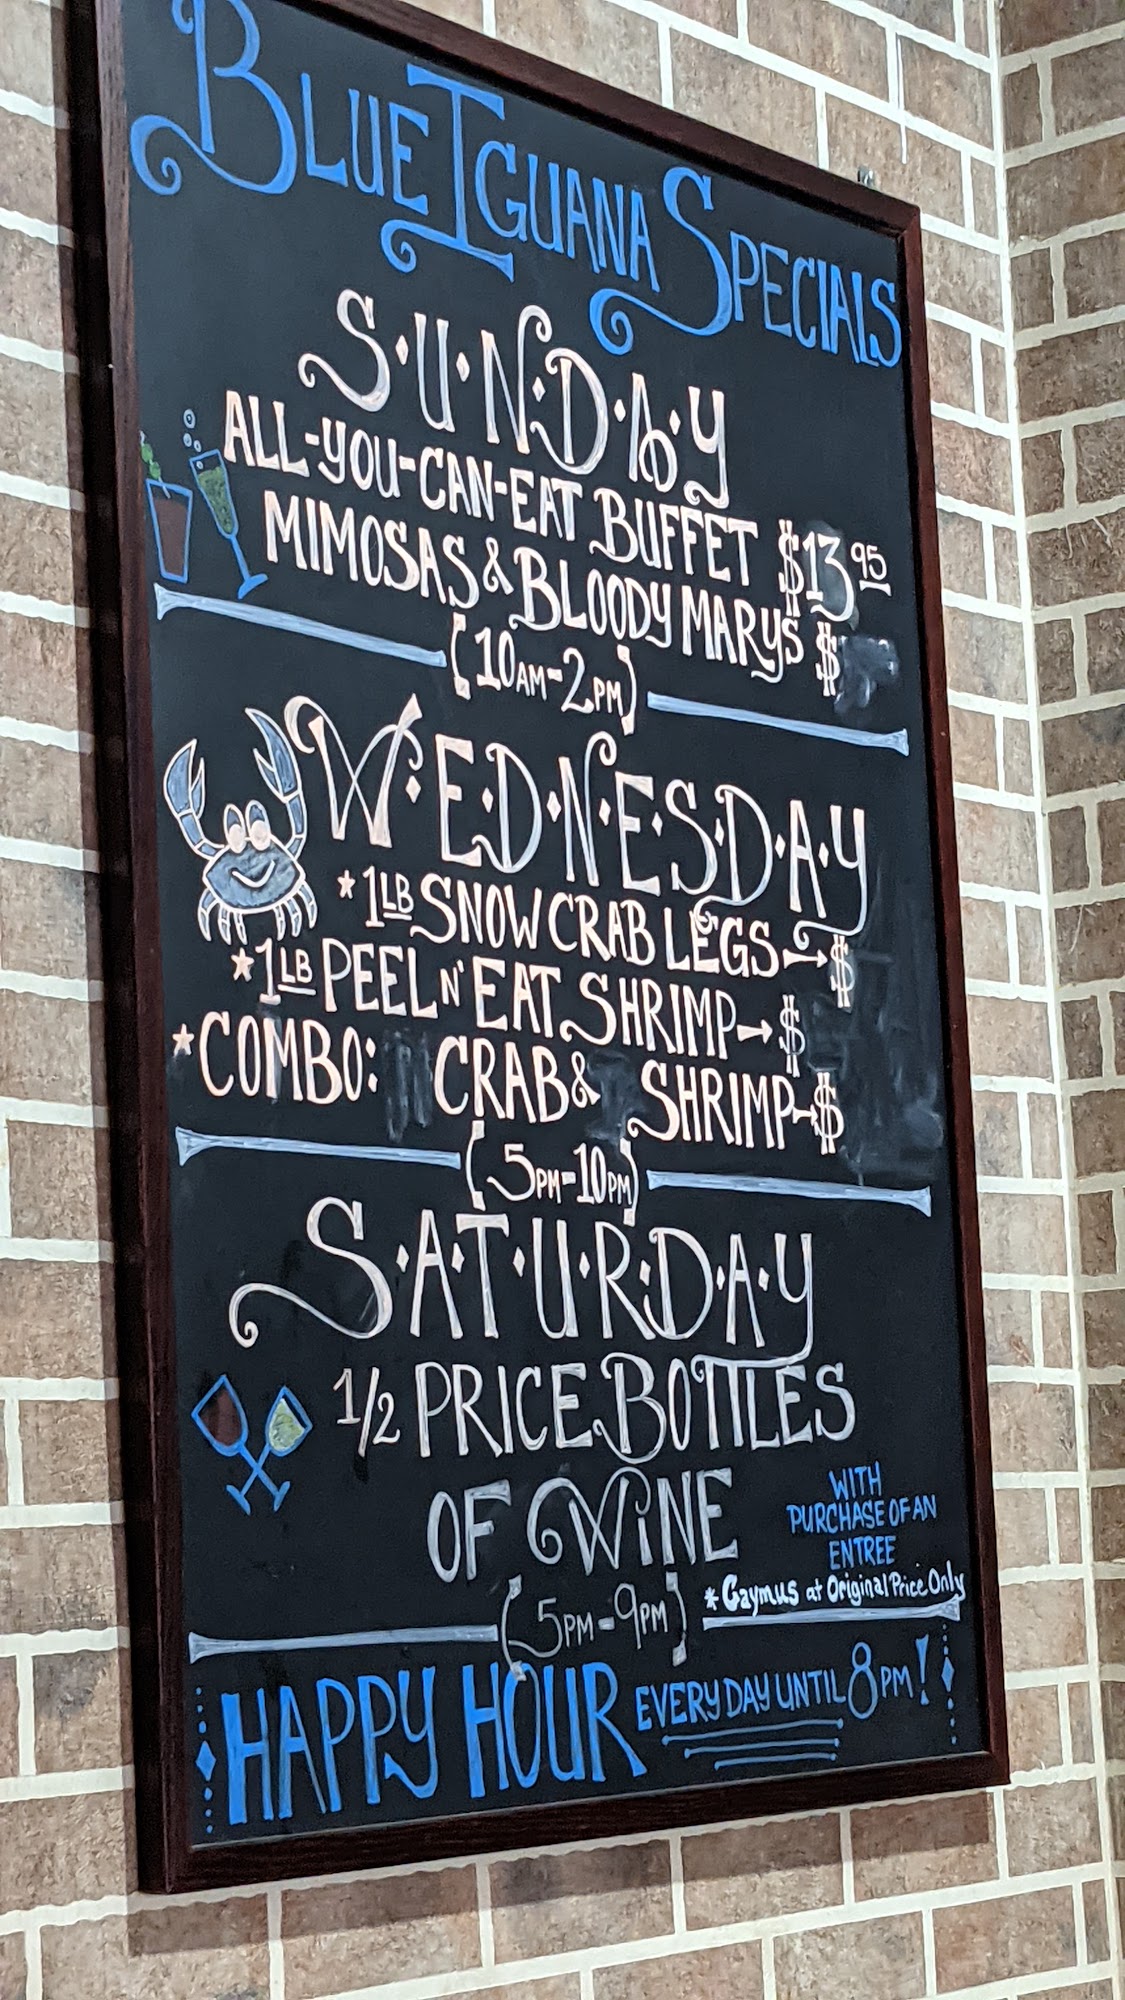 BLUE IGUANA SPECIALS
SUNDAY
ALL-YOU-CAN-EAT BUFFET $13.95
MIMOSAS & BLOODY MARYS $
(10AM-2PM)
W·E·D·N·E·S·D·A·Y
* 1LB SNOW CRAB LEGS→$
* 1LB PEEL N' EAT SHRIMP→$
* COMBO: CRAB & SHRIMP→$
(5PM-10PM)
S·A·T·U·R·D·A·Y
1/2 PRICE BOTTLES
OF WINE
WITH
PURCHASE OF AN
ENTREE
* Caymus at Original Price Only
(5PM-9PM)
HAPPY HOUR EVERYDAY UNTIL 8PM!